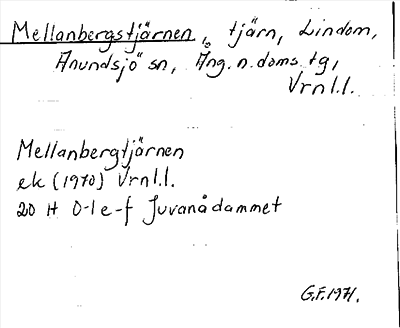 Mellanbergstjärnen, tjärn, Lindom,
Anundsjö sn, Ång. n. doms. tg,
Vrnl.l.
Mellanbergtjärnen
ek (1970) Vrnl.l.
20 H 0-1 e-f Juvanådammet
G.F. 1971.